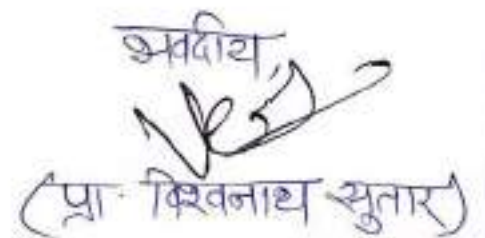 भवदीय,
(प्रा. विश्वनाथ सुतार)